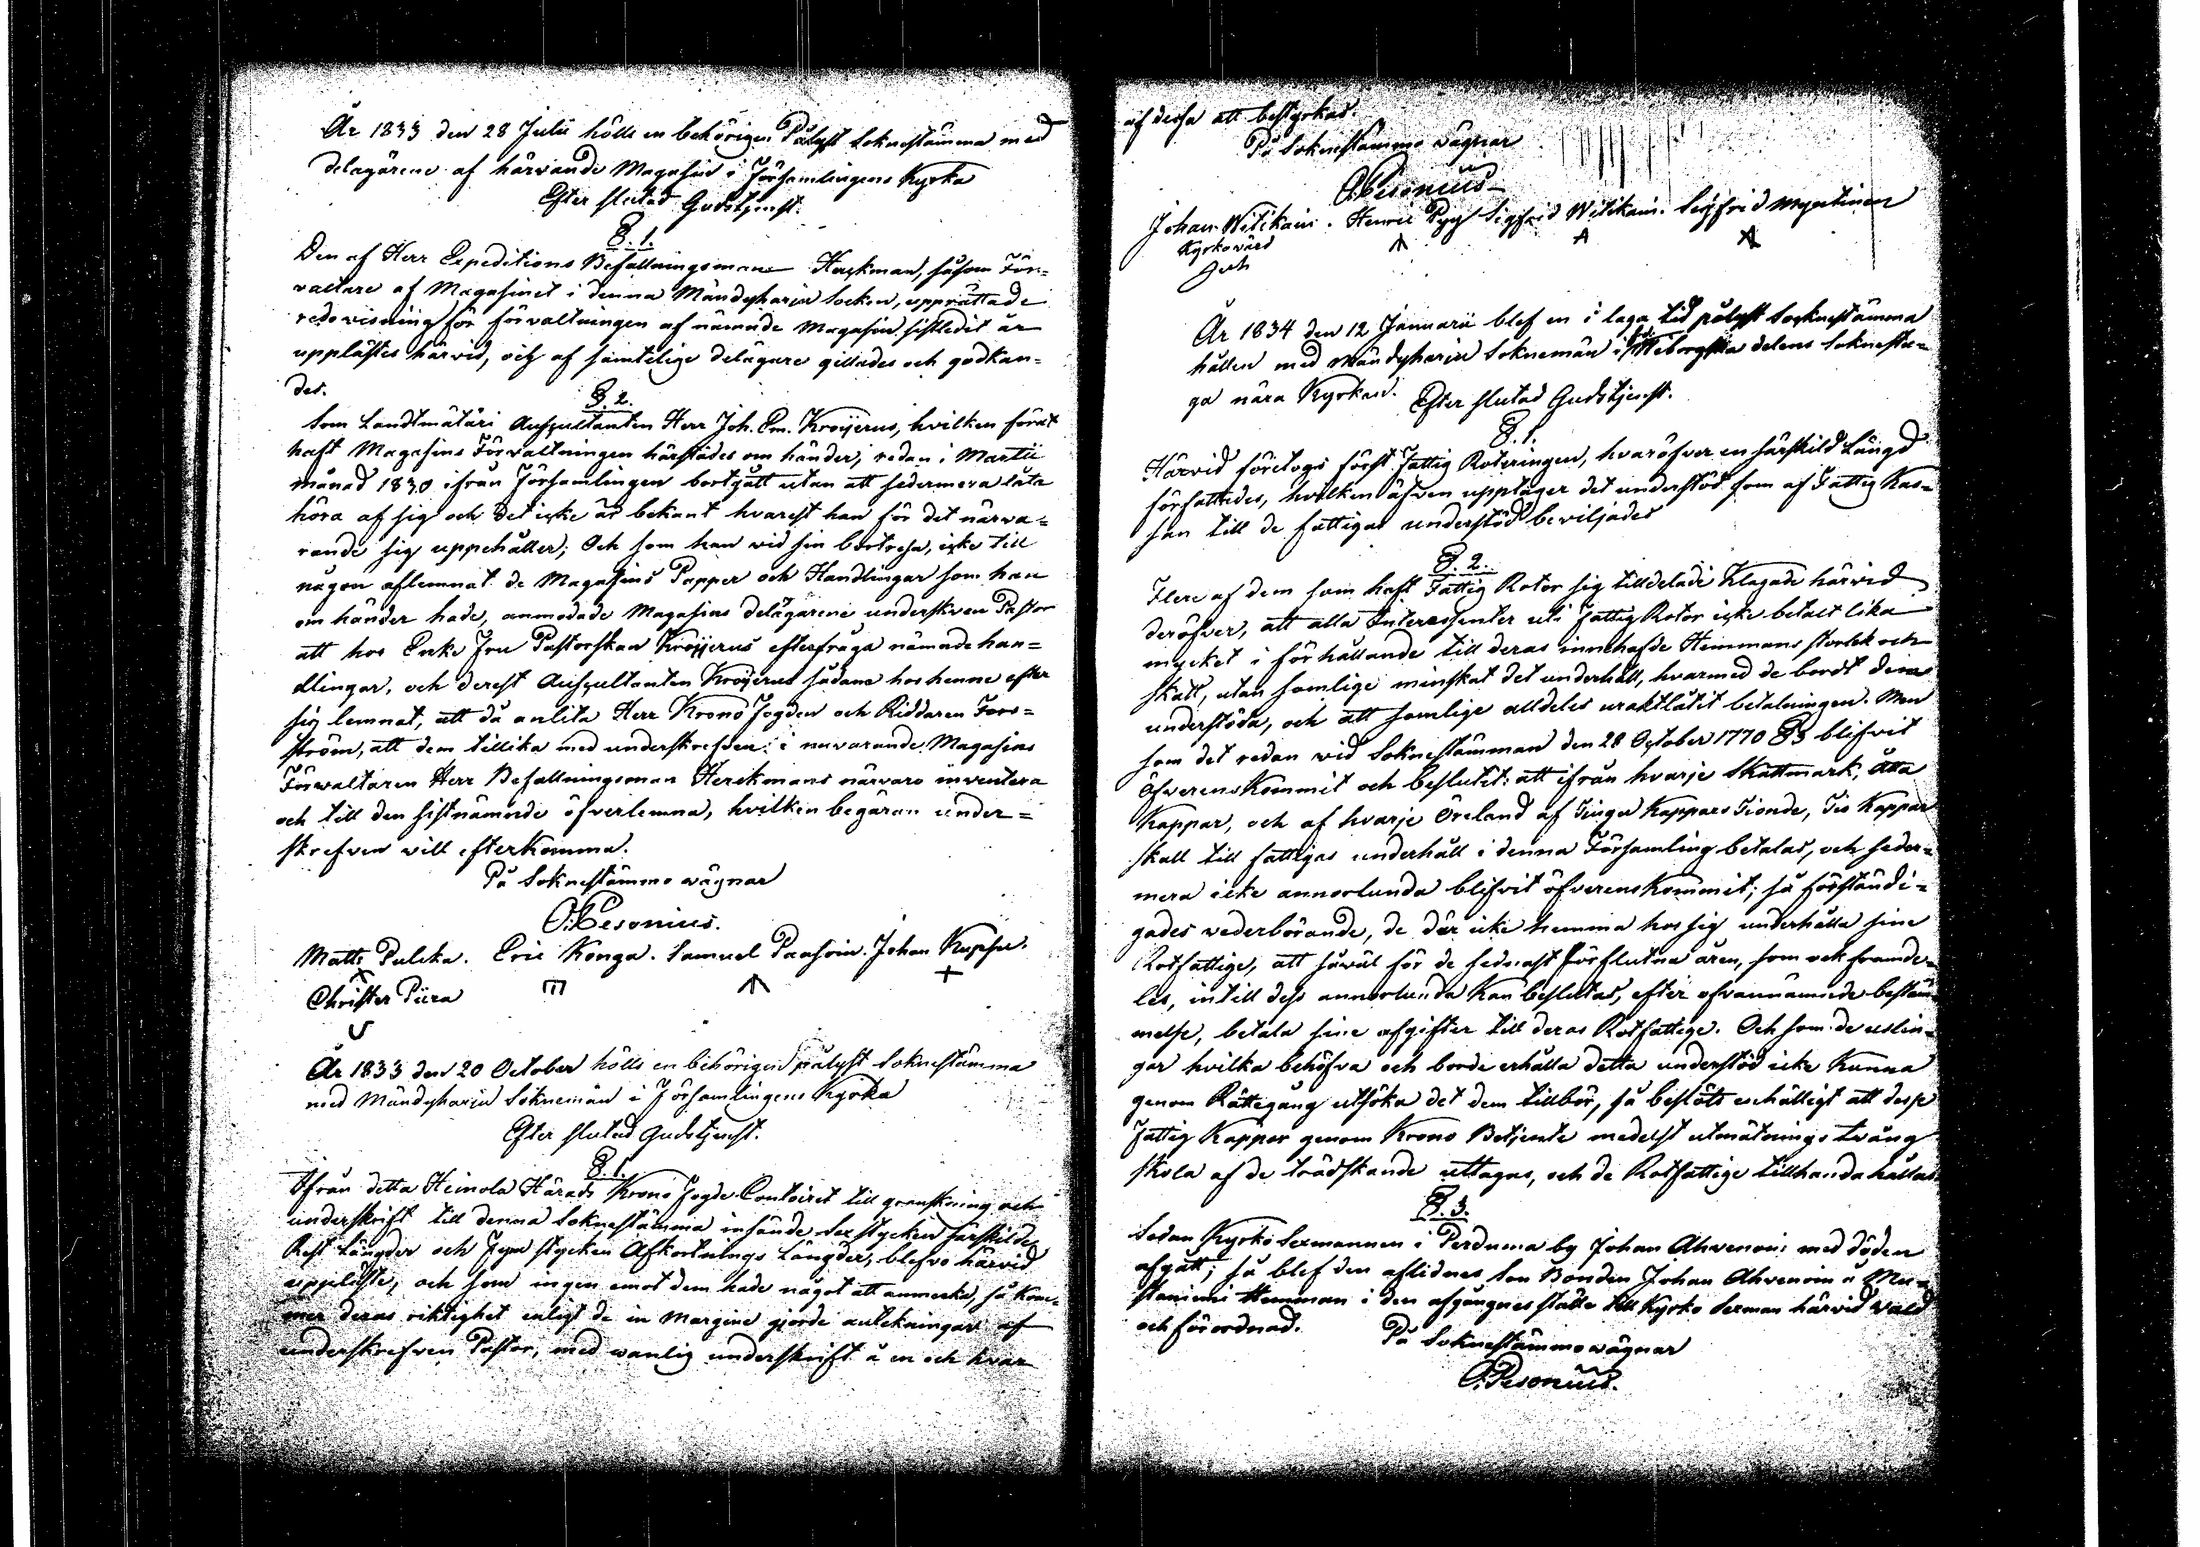 År 1833 den 28 Julii hölls en behörigen Pålyst Soknestämma med
delagärene af härvande Magasin i Församlingens Kyrka
Efter slutad Gudstjenst.
§. 1.
Den af Herr Expeditions Befallningsman Herckman, såsom För-
valtare af Magasinet i denna Mändyharju Socken, upprättade
redovisning för förvaltningen af nämnde Magasin sistledit år
upplästes härvid, och af samtelige delägare gillades och godkän-
des.
§. 2.
Som Landtmäteri Auscultanten Herr Joh. Em. Kroijerus, hvilken förut
haft Magasins Förvaltningen härstädes om händer, redan i Martii
månad 1830 ifrån Församlingen bortgått utan att sedermera låta
höra af sig och det icke är bekant hvarest han för det närva-
rande sig uppehåller; Och som han vid sin bortresa, icke till
någon aflemnat de Magasins Papper och Handlingar som han
om händer hade, anmodade Magasins delägarene underskrefven Pastor
att hos Enke Fru Pastorskan Kroijerus efterfråga nämnde han-
dlingar, och derest Auscultanten Kroijerus sådane hos henne efter
sig lemnat, att då anlita Herr Krono Fogden och Riddaren Fors-
ström, att dem tillika med underskrefven i nuvarande Magasins
Förvaltaren Herr Befallningsman Herckmans närvaro inventera
och till den sistnämnde öfverlemna, hvilken begäran under-
skrefven vill efterkomma.
På Soknestämmo wägnar
O. Pesonius.
Matts Pulcka. Eric Konga. Samuel Paasoin. Johan Kupsu.
Christer Piira
År 1833 den 20 October hölls en behörigen pålyst Soknestämma
med Mändyharju Soknemän i Församlingens Kyrka
Efter slutad Gudstjenst.
§. 1.
Ifrån detta Heinola Härads Krono Fogde Contoiret till granskning och
underskrift till denna Soknestämma insände Sex stycken särskilde
Rest Längder och Fyra stycken Afkortnings Längder, blefvo härvid
uppläste, och som ingen emot dem hade något att anmerka, så kom-
mer deras riktighet enligt de in margine gjorde antekningar af
underskrefven Pastor, med vanlig underskrift å en och hvar
af dessa att bestyrkas.
På Soknestämmo wägnar
O. Pesonius
Johan Witikain. Henric Pyy Sigfrid Witikain. Sigfrid Myntinen
Kyrkovärd
År 1834 den 12 Januarii blef en i laga tid pålyst Socknestämma
hållen med Mändyharju Soknemän i delens Soknestu-
ga nära Kyrkan. Efter slutad Gudstjenst.
§. 1.
Härvid företogs först Fattig Roteringen, hvaröfver en särskild Längd
författades, hvilken äfven upptager det understöd som af Fattig Kas-
san till de fattigas understöd beviljades
§. 2.
Flere af dem som haft Fattig Rotor sig tilldelade Klagade härvid
deröfver, att alla Interessenter uti Fattig Rotor icke betalt lika
mycket i förhållande till deras innehafde Hemmans storlek och
skatt, utan somlige minskat det underhåll, hvarmed de bordt dem
understöda, och att somlige alldeles uraktlåtit betalningen. Men
som det redan vid Soknestämman den 28 October 1770 §3 blifvit
öfverenskommit och beslutit: att ifrån hvarje Skattmark, åtta
Kappar, och af hvarje Öreland af Tiugu Kappars Tionde, Tio Kappar
skall till fattigas underhåll i denna Församling betalas, och seder-
mera icke annorlunda blifvit öfverenskommit; så förständi-
gades vederbörande, de där icke hemma hos sig underhålla sine
Rotfattige, att såväl för de sednast förflutna åren, som ock framde-
les, intill dess annorlunda kan beslutas, efter ofvannämnde bestäm-
melse, betala sine afgifter till deras Rotfattige. Och som de uslin-
gar hvilka behöfva och borde erhålla detta understöd icke kunna
genom Rättegång utsöka det dem tillbör, så beslöts enhälligt att desse
Fattig Kappar genom Krono Betjente medelst utmätnings tvång
skola af de trädskande uttagas, och de Rotfattige tillhanda hållas.
§. 3.
Sedan Kyrko Sexmannen i Perduma by Johan Ahvenain med döden
afgått; så blef den aflidnes Son Bonden Johan Ahvenoin å Mu-
staniemi Hemman i den afgångnes ställe till Kyrko Sexman härvid vald
och förordnad. På Soknestämmo wägnar
O. Pesonius.